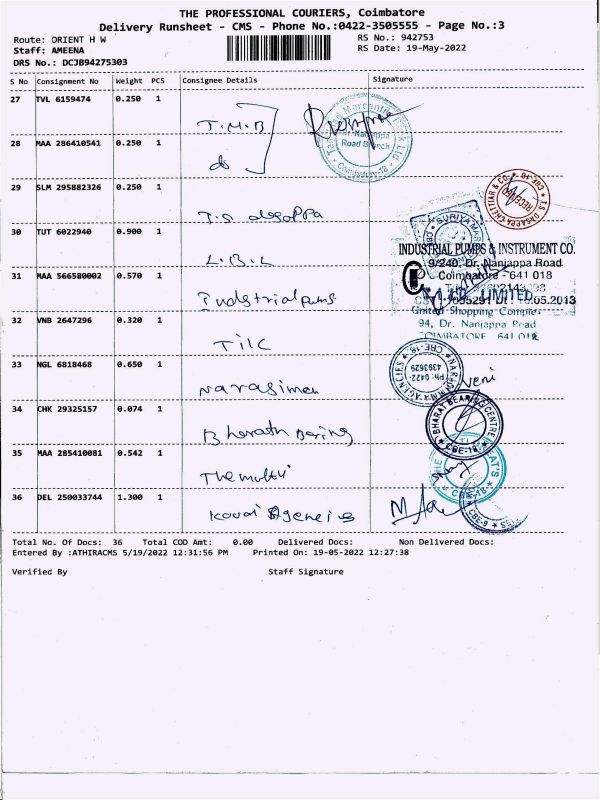 THE PROFESSIONAL COURIERS, Coimbatore
Delivery Runsheet - CMS - Phone No.:0422-3505555 - Page No.:3
Route: ORIENT H W
RS No.: 942753
Staff: AMEENA
RS Date: 19-May-2022
DRS No.: DCJB94275303
S No Consignment No Weight PCS Consignee Details Signature
27 TVL 6159474 0.250 1
T.M.B
28 MAA 286410541 0.250 1
do
29 SLM 295882326 0.250 1
T.S dasappa
30 TUT 6022940 0.900 1
L.B.L
31 MAA 566580002 0.570 1
Industrial pums
32 VNB 2647296 0.320 1
TILC
33 NGL 6818468 0.650 1
narasiman
34 CHK 29325157 0.074 1
Bharath Bering
35 MAA 285410081 0.542 1
The multi
36 DEL 250033744 1.300 1
Kovai Agencies
Mercantile
Nanjappa
Road Branch
Coimbatore-18
T.S. DASAPPA CHETTIAR & CO. CBE-18
RECEIVED
SURIYA
INDUSTRIAL PUMPS & INSTRUMENT CO.
9/240, Dr. Nanjappa Road
Coimbatore - 641 018
LIMITED
.05.2013
United Shopping Complex
94, Dr. Nanjappa Road
COIMBATORE 641 018
AGENCIES CBE-18
Ph: 0422-
4393629
Veni
BHARAT BEARING CENTRE
CBE-18
CBE-18
CBE-9
Total No. Of Docs: 36 Total COD Amt: 0.00 Delivered Docs: Non Delivered Docs:
Entered By :ATHIRACMS 5/19/2022 12:31:56 PM Printed On: 19-05-2022 12:27:38
Verified By Staff Signature